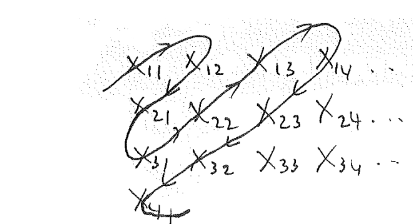 X11 X12 X13 X14 ...
X21 X22 X23 X24 ...
X31 X32 X33 X34 ...
X41